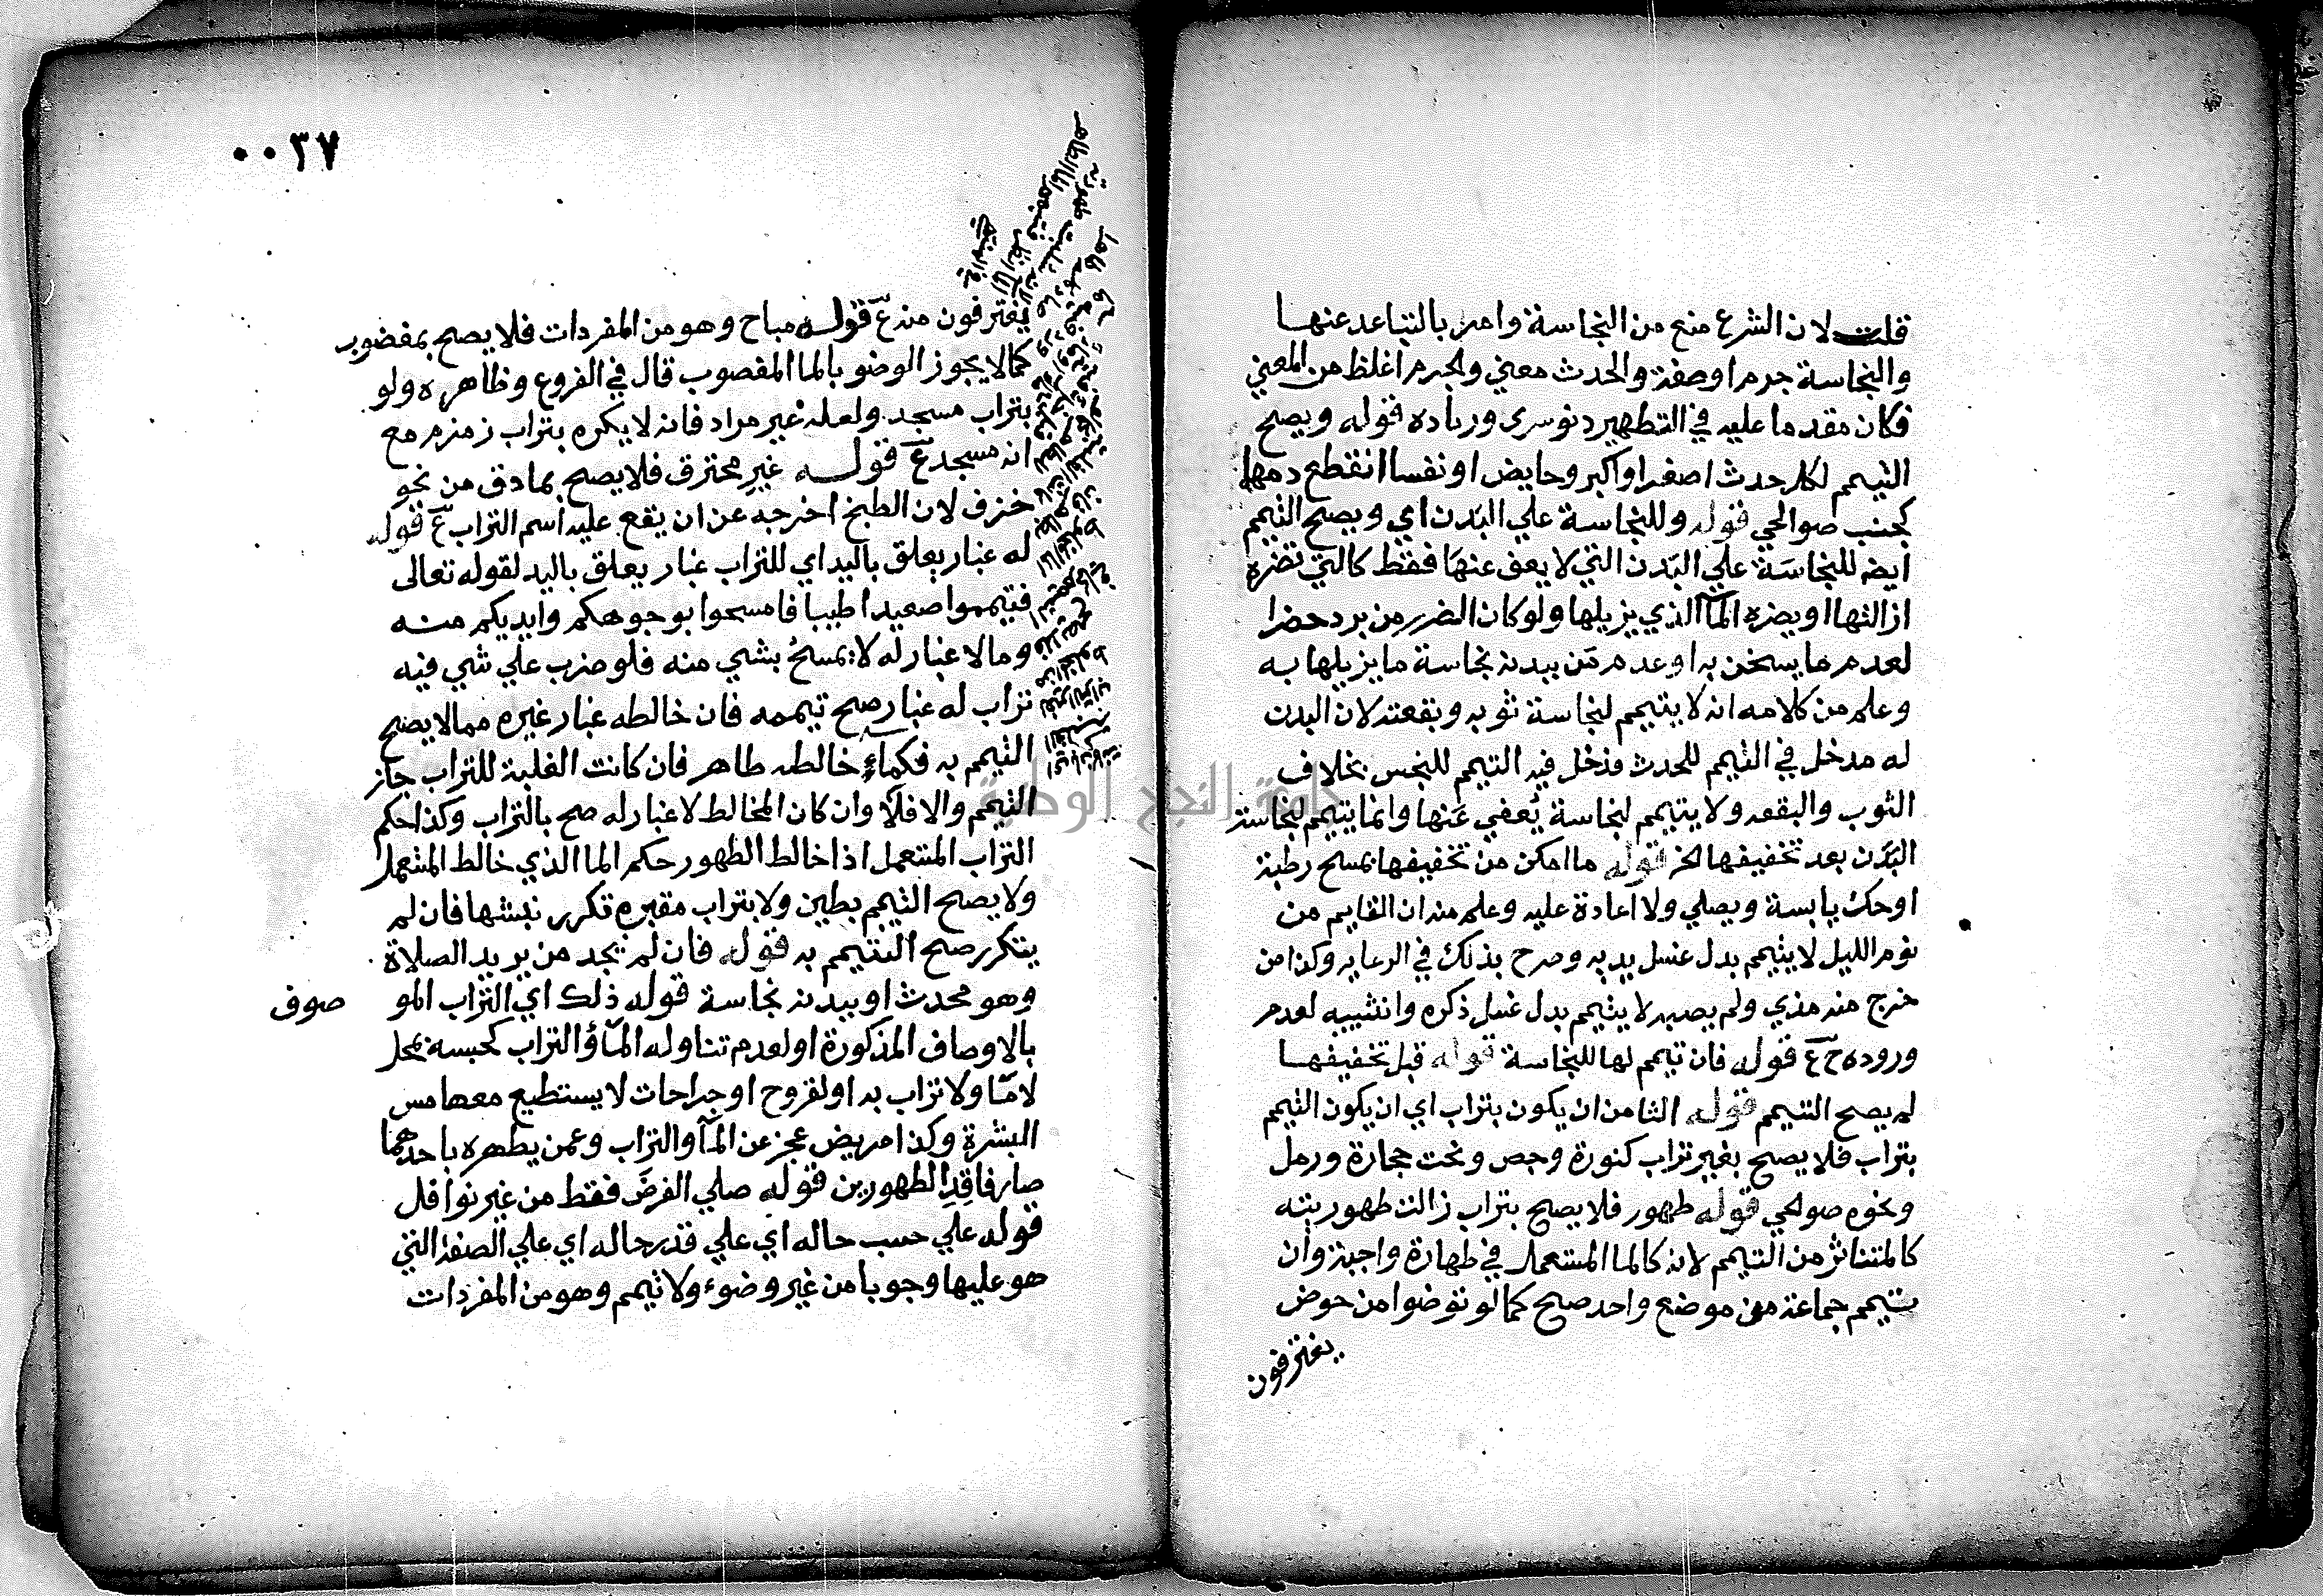 قلت لان الشرع منع من النجاسة وامر بالتباعد عنها
والنجاسة جرم او صفة والحدث معني والجرم اغلظ من المعني
فكان مقدما عليه في التطهير دنوسري وزياده قوله ويصح
التيمم لكل حدث اصغر او اكبر وحايض او نفسا انقطع دمها
كجنب صوالحي قوله وللنجاسة علي البدن اي ويصح التيمم
ايضه للنجاسة علي البدن التي لا يعف عنها فقط كالتي تضره
ازالتها او يضره المآ الذي يزيلها ولو كان الضرر من برد حضرا
لعدم ما يسخن به او عدم من ببدنه نجاسة ما يزيلها به
وعلم من كلامه انه لا يتيمم لنجاسة ثوبه وبقعته لان البدن
له مدخل في التيمم للحدث فدخل فيه التيمم للنجس بخلاف
الثوب والبقعه ولا يتيمم لنجاسة يعفي عنها وانما يتيمم لنجاسة
البدن بعد تخفيفها الخ قوله ما امكن من تخفيفها بمسح رطبة
او حك يابسة ويصلي ولا اعادة عليه وعلم منه ان القايم من
نوم الليل لا يتيمم بدل غسل يديه وصرح بذلك في الرعايه وكذا من
خرج منه مذي ولم يصبه لا يتيمم بدل غسل ذكره وانثييه لعدم
وروده ح ع قوله فان تيمم لها للنجاسة قوله قبل تخفيفها
لم يصح التيمم قوله الثامن ان يكون بتراب اي ان يكون التيمم
بتراب فلا يصح بغير تراب كنورة وجص ونحت حجارة ورمل
ونحوه صوالحي قوله طهور فلا يصح بتراب زالت طهوريته
كالمتناثر من التيمم لانه كالما المستعمل في طهارة واجبة وان
يتيمم جماعة من موضع واحد صح كما لو توضوا من حوض
يغترفون
٠٠٣٧
يغترفون منه ع قوله مباح وهو من المفردات فلا يصح بمغضوب
كما لا يجوز الوضو بالما المغصوب قال في الفروع وظاهره ولو
بتراب مسجد ولعله غير مراد فانه لا يكره بتراب زمزم مع
انه مسجد ع قوله غير محترق فلا يصح بمادق من نحو
خزف لان الطبخ اخرجه عن ان يقع عليه اسم التراب ع قوله
له غبار يعلق باليد اي للتراب غبار يعلق باليد لقوله تعالى
فتيمموا صعيدا طيبا فامسحوا بوجوهكم وايديكم منه
وما لا غبار له لا يمسح بشي منه فلو ضرب علي شي فيه
تراب له غبار صح تيممه فان خالطه غبار غيره مما لا يصح
التيمم به فكماء خالطه طاهر فان كانت الغلبة للتراب جاز
التيمم والا فلا وان كان المخالط لا غبار له صح بالتراب وكذا حكم
التراب المستعمل اذا خالط الطهور حكم الما الذي خالط المستعمل
ولا يصح التيمم بطين ولا بتراب مقبره تكرر نبشها فان لم
يتكرر صح التيمم به قوله فان لم يجد من يريد الصلاة
وهو محدث او ببدنه نجاسة قوله ذلك اي التراب المو صوف
بالاوصاف المذكورة او لعدم تناوله المآ والتراب كحبسه بمحل
لا مآ ولا تراب به او لقروح او جراحات لا يستطيع معها مس
البشرة وكذا مريض عجز عن المآ والتراب وعمن يطهره باحدهما
صار فاقد الطهورين قوله صلي الفرض فقط من غير نوافل
قوله علي حسب حاله اي علي قدر حاله اي علي الصفة التي
هو عليها وجوبا من غير وضوء ولا تيمم وهو من المفردات
جامعة النجاح الوطنية